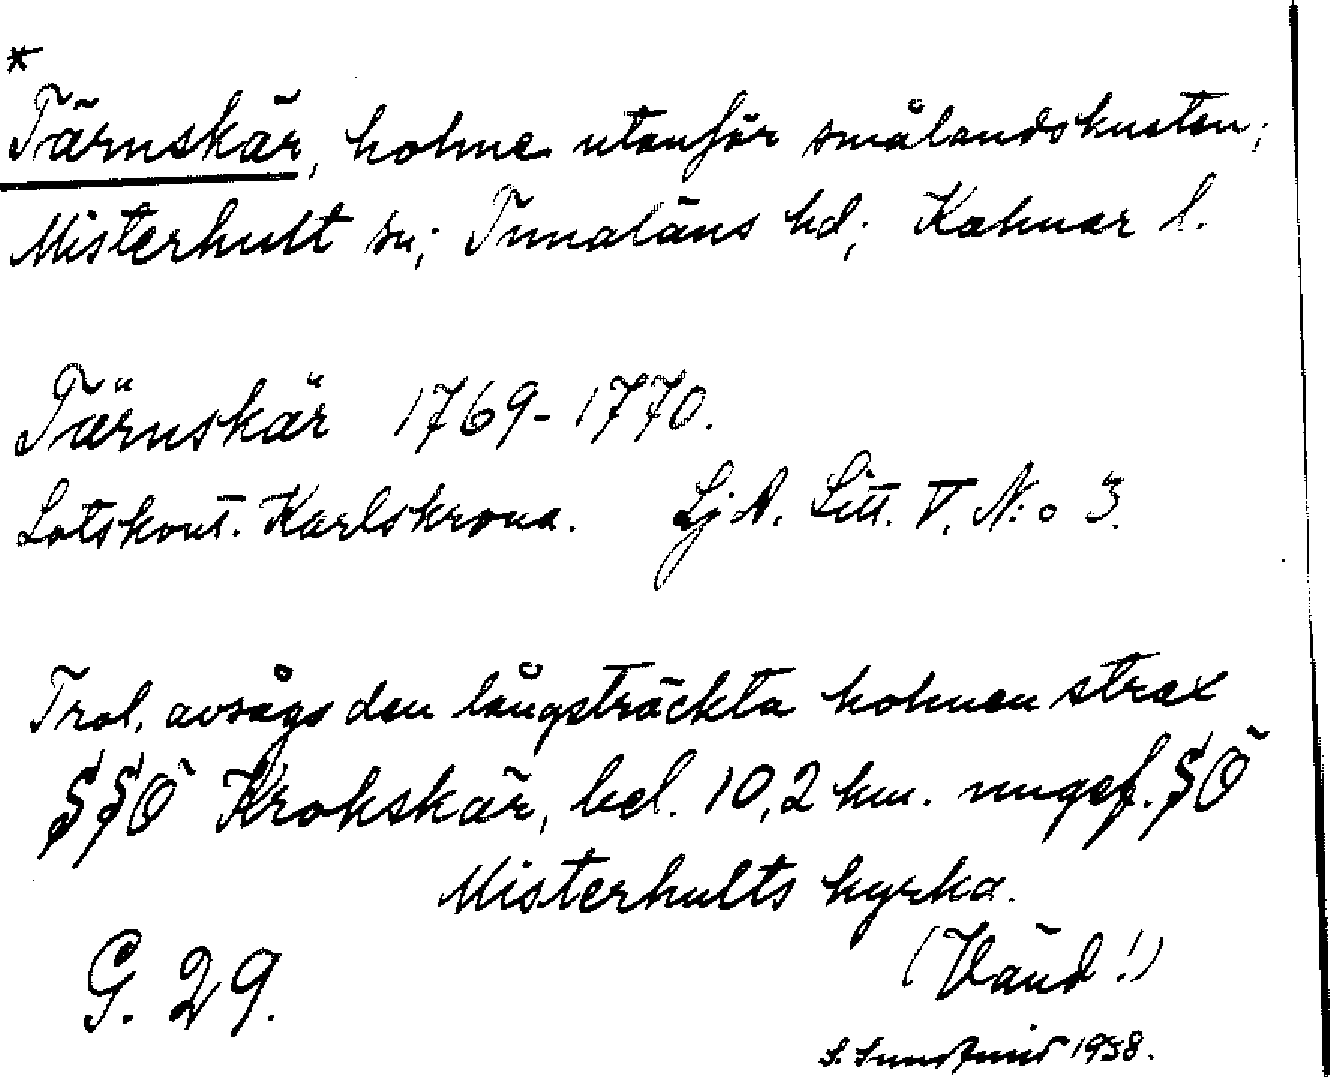 *
Tärnskär, holme utanför smålandskusten;
Misterhult sn; Tunaläns hd; Kalmar l.
Tärnskär 1769-1770.
Lotskont. Karlskrona. LjA. Litt. V. N:o 3.
Trol. avsågs den långsträckta holmen strax
SSÖ Krokskär, bel. 10,2 km. ungef. SÖ
Misterhults kyrka.
(Vänd!)
G. 29.